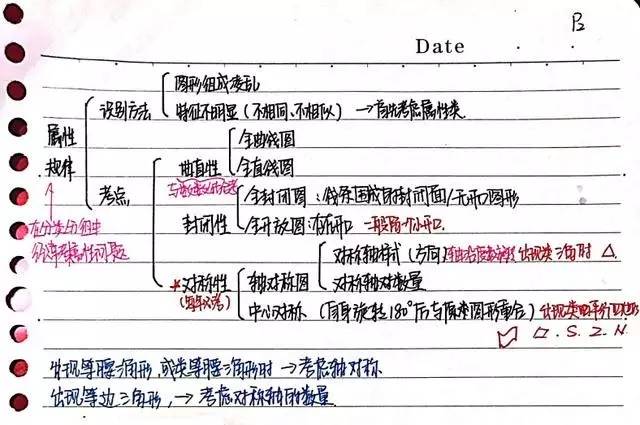 Date
图形组成凌乱
识别方法
特征不明显(不相同、不相似) →首先考虑属性类
属性
规律
全曲线图
曲直性
全直线图
考点
全封闭图:线条围成的封闭面/无开口图形
封闭性
全开放图:有开口 一般留一个小开口.
在分类分组中
对称轴样式(方向) 出现类三角时 △.
轴对称图
*对称性
对称轴对数量
(每年必考)
中心对称(自身旋转180°后与原来图形重合)
□.S.Z.N.
出现等腰三角形,或类等腰三角形时→考虑轴对称
出现等边三角形,→考虑对称轴的数量